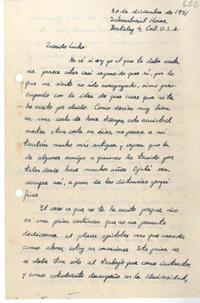 30 de diciembre de 1941
International House
Berkeley 4 Cal. U.S.A.
Querido Lucho:
No sé si soy yo el que te debe carta
me parece estar casi seguro de que sí, por lo
que me siento no sólo avergonzado, sino preo-
cupado con la idea de que creas que no te
he escrito por olvido. Como decías muy bien
en una carta de hace tiempo esta amistad
nuestra
también muy antigua, y espero que la
de algunos amigos a quienes he tenido por
tales desde hace muchos años. Ojalá sea
siempre así, a pesar de las distancias geográ-
ficas
El caso es que no te he escrito porque vivo
en una prisa continua que no me permite
dedicarme al placer epistolar más que cuando
como ahora estoy en vacaciones. Esta prisa no
se debe tan sólo al trabajo que como instructor
y como estudiante desempeño en la Universidad,